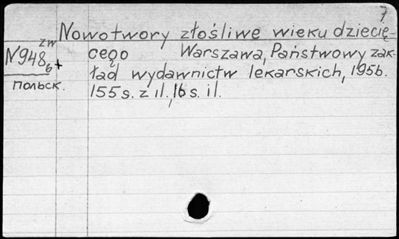 7
Nowotwory złośliwe wieku dziecię-
cego Warszawa, Państwowy zak-
ład wydawnictw lekarskich, 1956.
155 s. z il., 16 s. il.
zw
N948
6 +
польск.